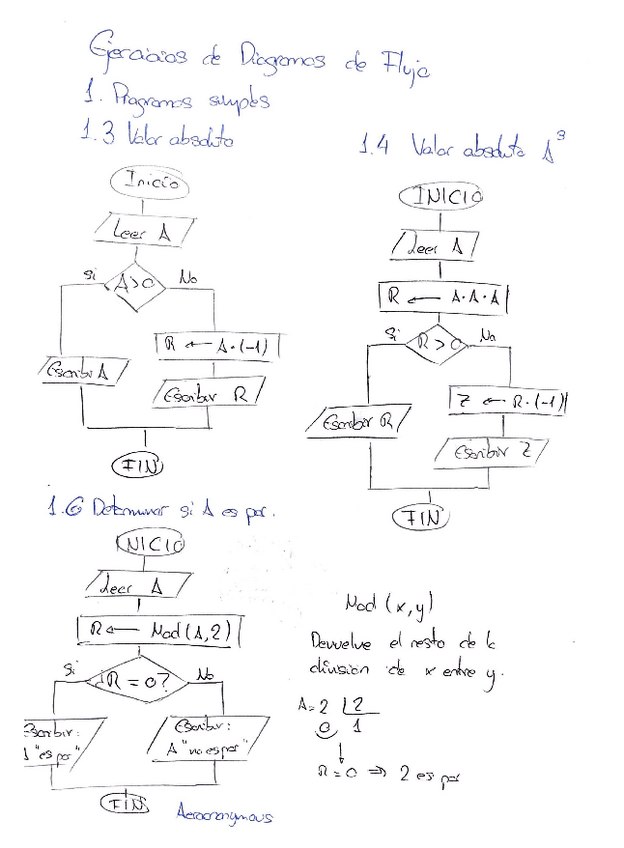 Ejercicios de Diagramas de Flujo
1. Programas simples
1.3 Valor absoluto
Inicio
Leer A
A>0
Si
No
R ← A·(-1)
Escribir A
Escribir R
FIN
1.4 Valor absoluto A³
INICIO
Leer A
R ← A·A·A
R>0
Si
No
Z ← R·(-1)
Escribir R
Escribir Z
FIN
1.6 Determinar si A es par.
INICIO
Leer A
R ← Mod(A,2)
R=0?
Si
No
Escribir:
A "es par"
Escribir:
A "no es par"
FIN
Aeroanonymous
Mod (x,y)
Devuelve el resto de la
división de x entre y.
A=2 2
0 1
R=0 ⇒ 2 es par